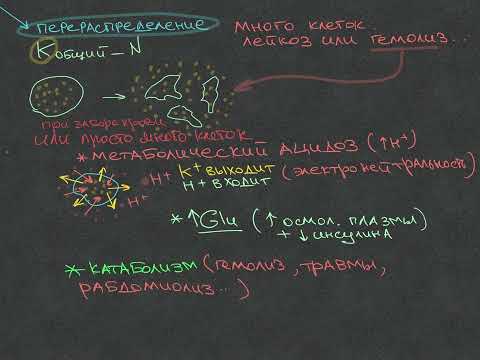 ПЕРЕРАСПРЕДЕЛЕНИЕ
Кобщий – N
МНОГО КЛЕТОК
ЛЕЙКОЗ ИЛИ ГЕМОЛИЗ...
ПРИ ЗАБОРЕ КРОВИ
ИЛИ ПРОСТО МНОГО КЛЕТОК
* МЕТАБОЛИЧЕСКИЙ АЦИДОЗ (↑H⁺)
H⁺ K⁺ ВЫХОДИТ (ЭЛЕКТРОНЕЙТРАЛЬНОСТЬ)
H⁺ H⁺ ВХОДИТ
* ↑Glu (↑ ОСМОЛ. ПЛАЗМЫ)
+ ↓ ИНСУЛИНА
* КАТАБОЛИЗМ (ГЕМОЛИЗ, ТРАВМЫ,
РАБДОМИОЛИЗ...)